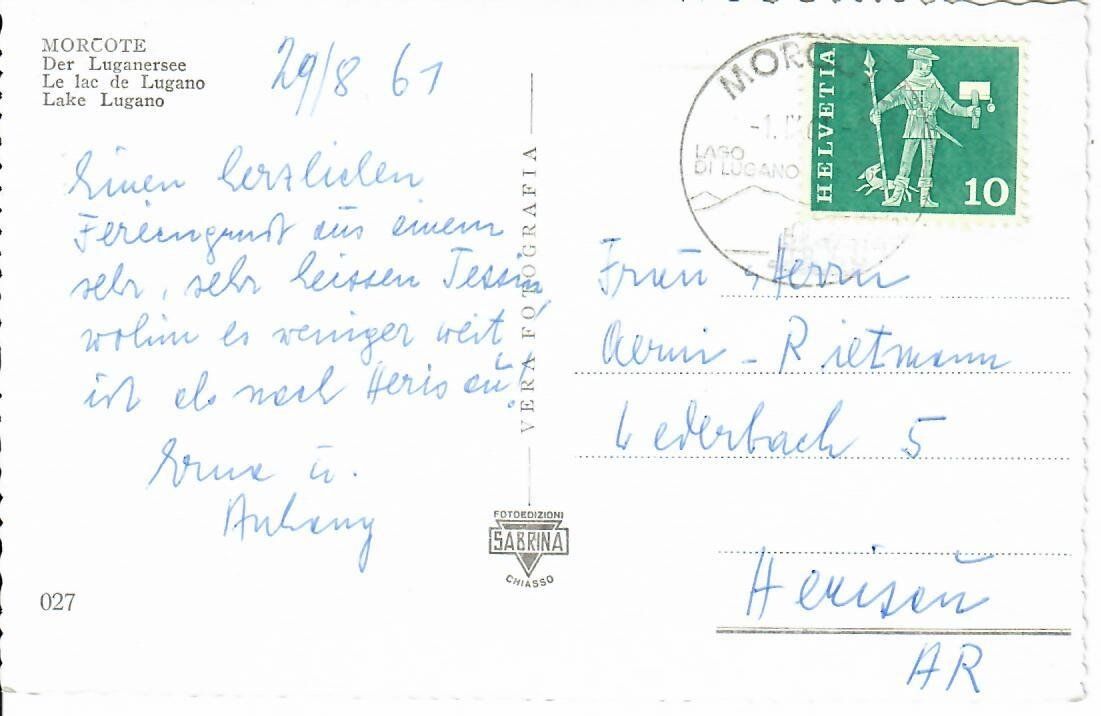 MORCOTE
Der Luganersee
Le lac de Lugano
Lake Lugano
29/8 61
Einen herzlichen
Feriengruss aus einem
sehr, sehr heissen Tessin,
wohin es weniger weit
ist als nach Herisau!
Erna u.
Anhang
027
VERA FOTOGRAFIA
FOTOEDIZIONI
SABRINA
CHIASSO
MORCO
-1. IX
LAGO
DI LUGANO
HELVETIA
10
Frau Herrn
Rietmann
Lederbach 5
Herisau
AR